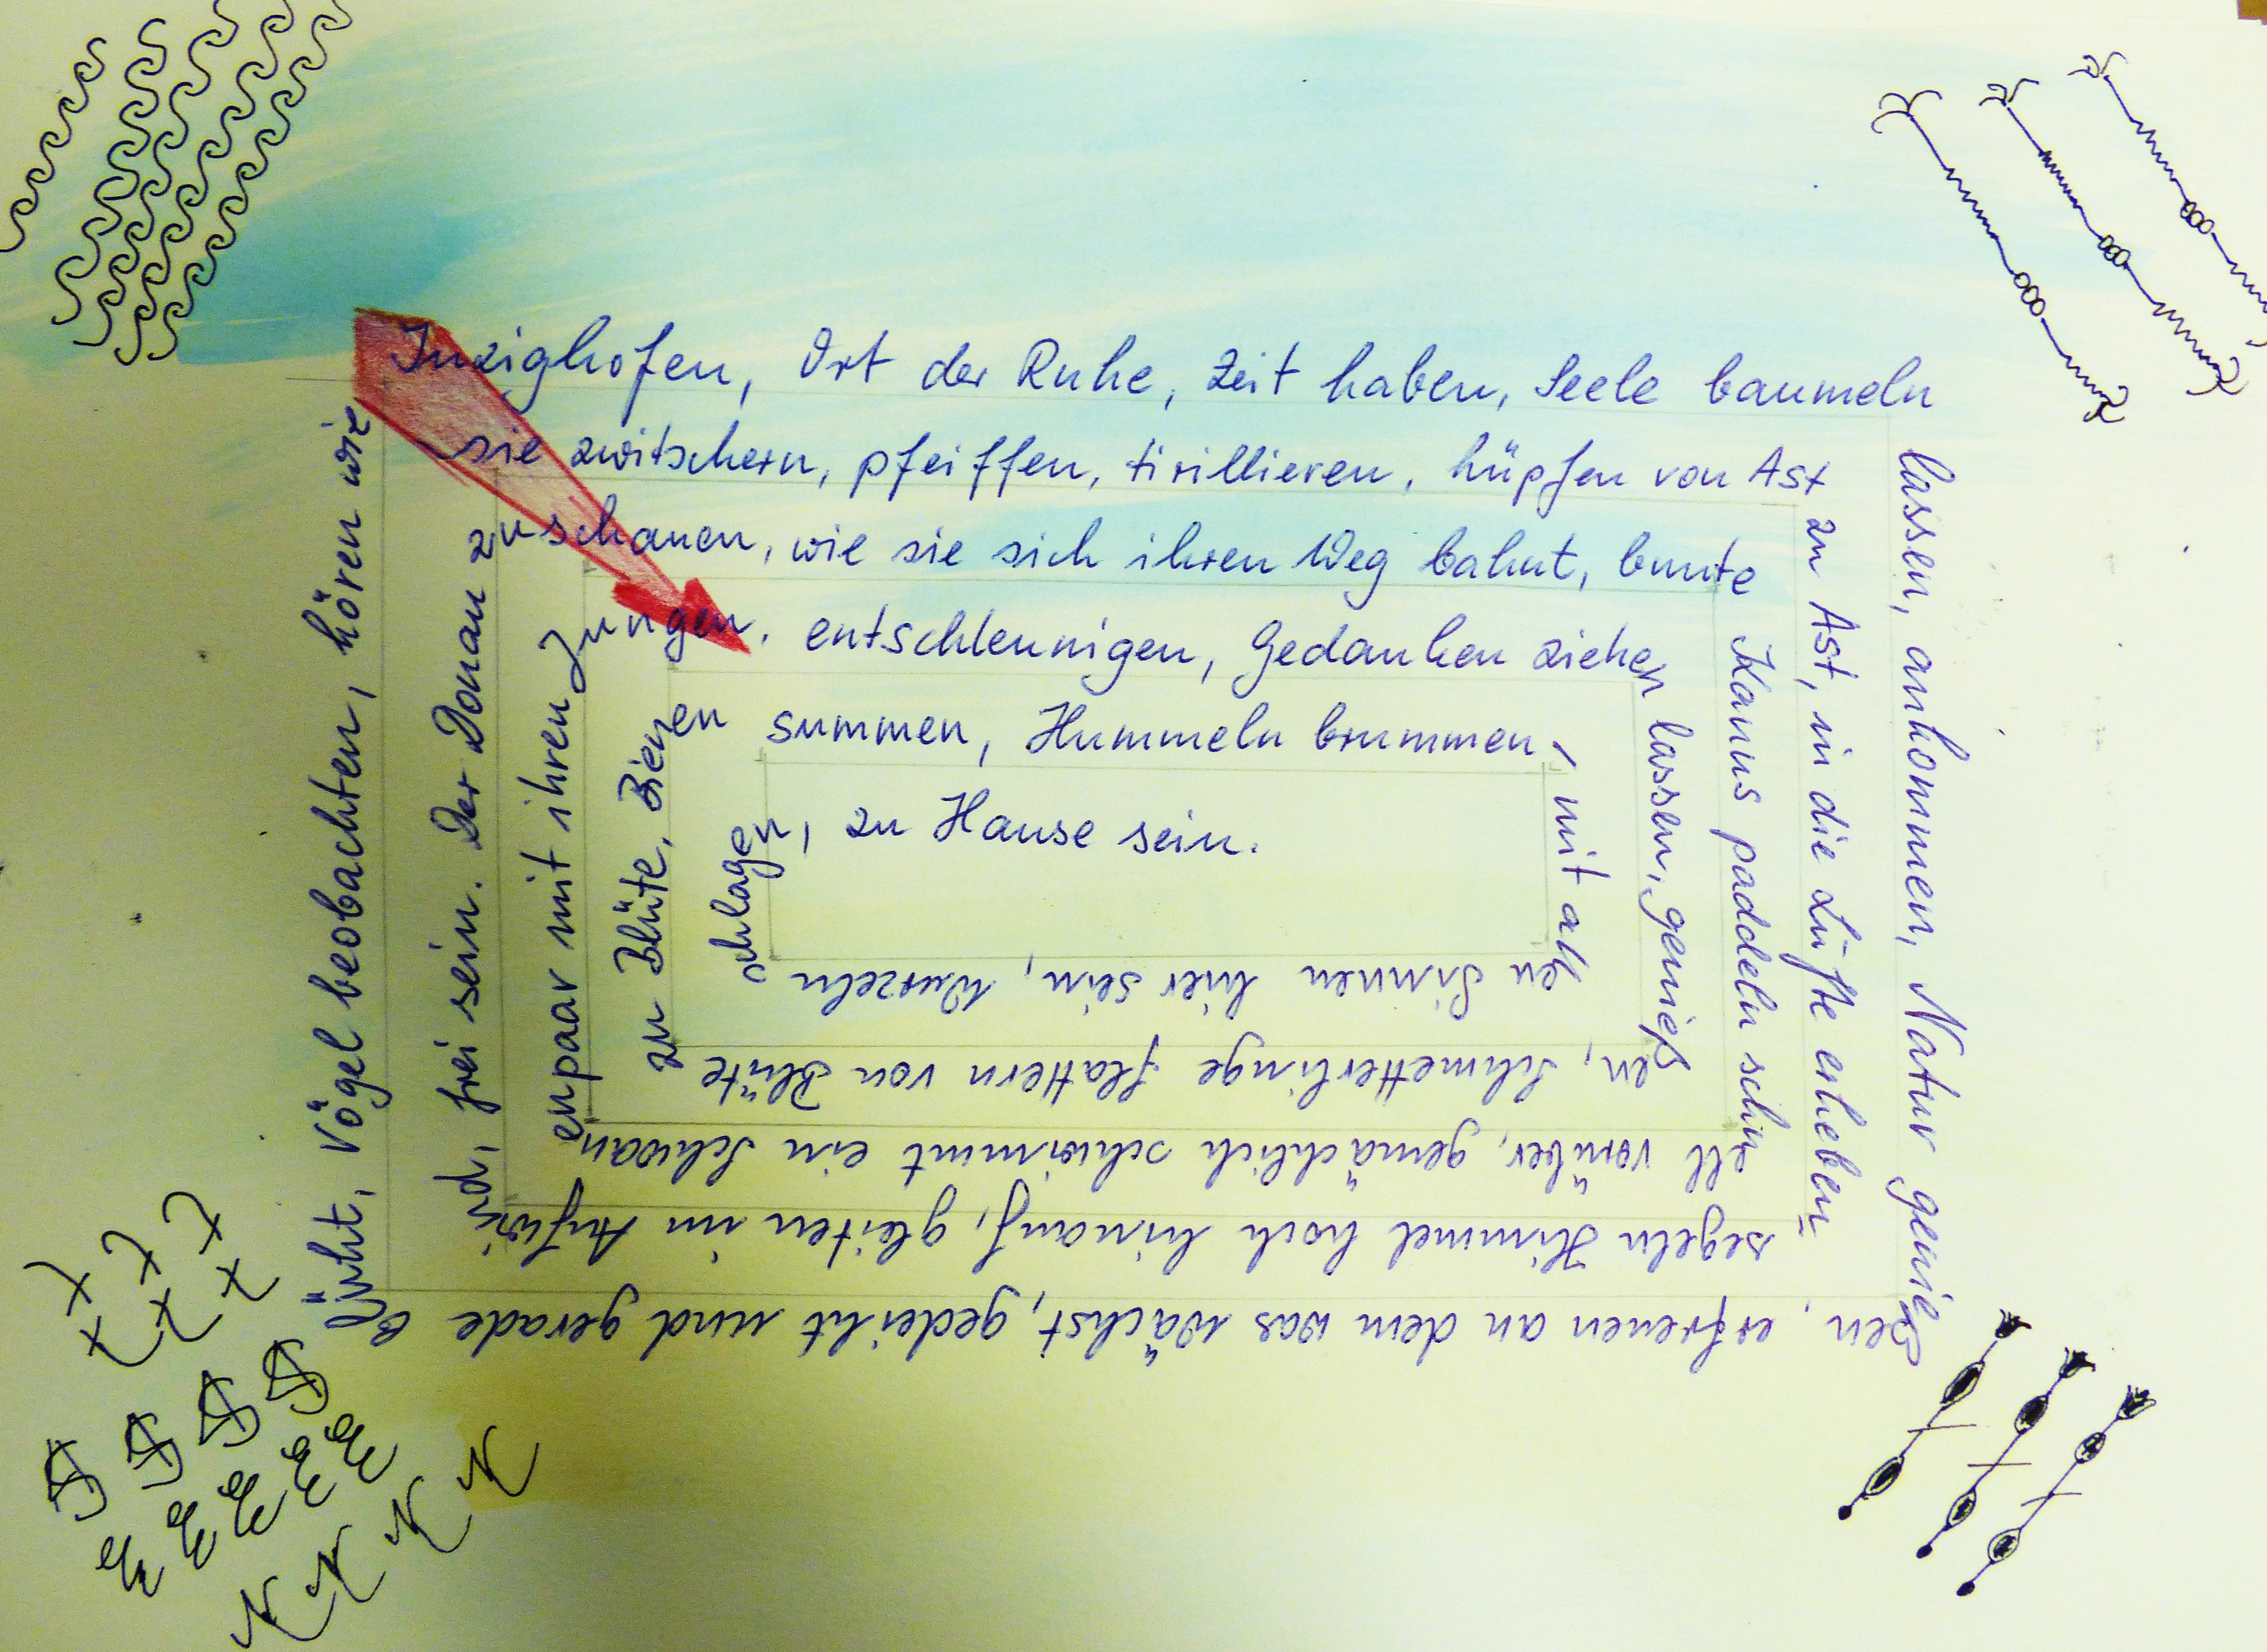 Inzighofen, Ort der Ruhe, Zeit haben, Seele baumeln
lassen, ankommen, Natur genieß
en, erfreuen an dem was wächst, gedeiht und gerade b
lüht, Vögel beobachten, hören wie
sie zwitschern, pfeiffen, tirillieren, hüpfen von Ast
zu Ast, in die Lüfte erheben,
segeln Himmel hoch hinauf, gleiten im Aufwi
nd, frei sein. Der Donau
zuschauen, wie sie sich ihren Weg bahnt, bunte
Kanus paddeln schn
ell vorüber, gemächlich schwimmt ein Schwan
enpaar mit ihren
Jungen, entschleunigen, Gedanken ziehen
lassen, genieß
en, Schmetterlinge flattern von Blüte
zu Blüte, Bien
en summen, Hummeln brummen,
mit al
len Sinnen hier sein, Wurzeln
schlagen, zu Hause sein.